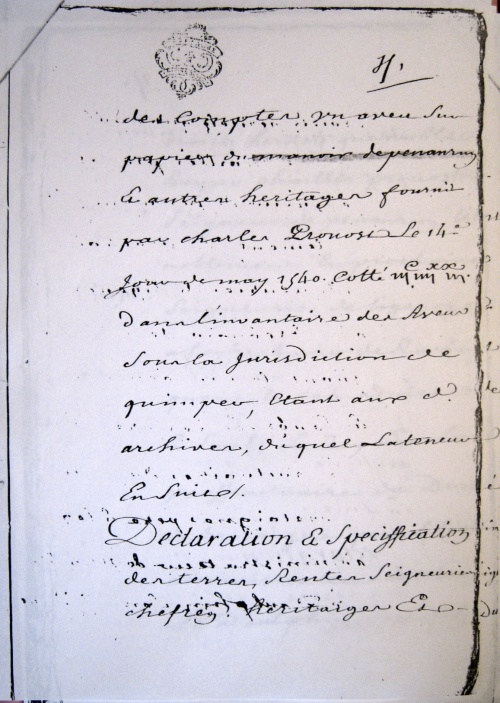 4.
des Comptes, un aveu Sur
papier du manoir de penanrun
& autres heritages fournit
par charles Provost Le 14e
Jour de may 1540. Cotté
Dans l'inventaire des Aveus
Sous la Jurisdiction de
quimper, Etant aux d.
archives, duquel La teneur
En Suit.
Declaration & Specissification
des terres, Rentes Seigneurie
chefren. heritaiges Et